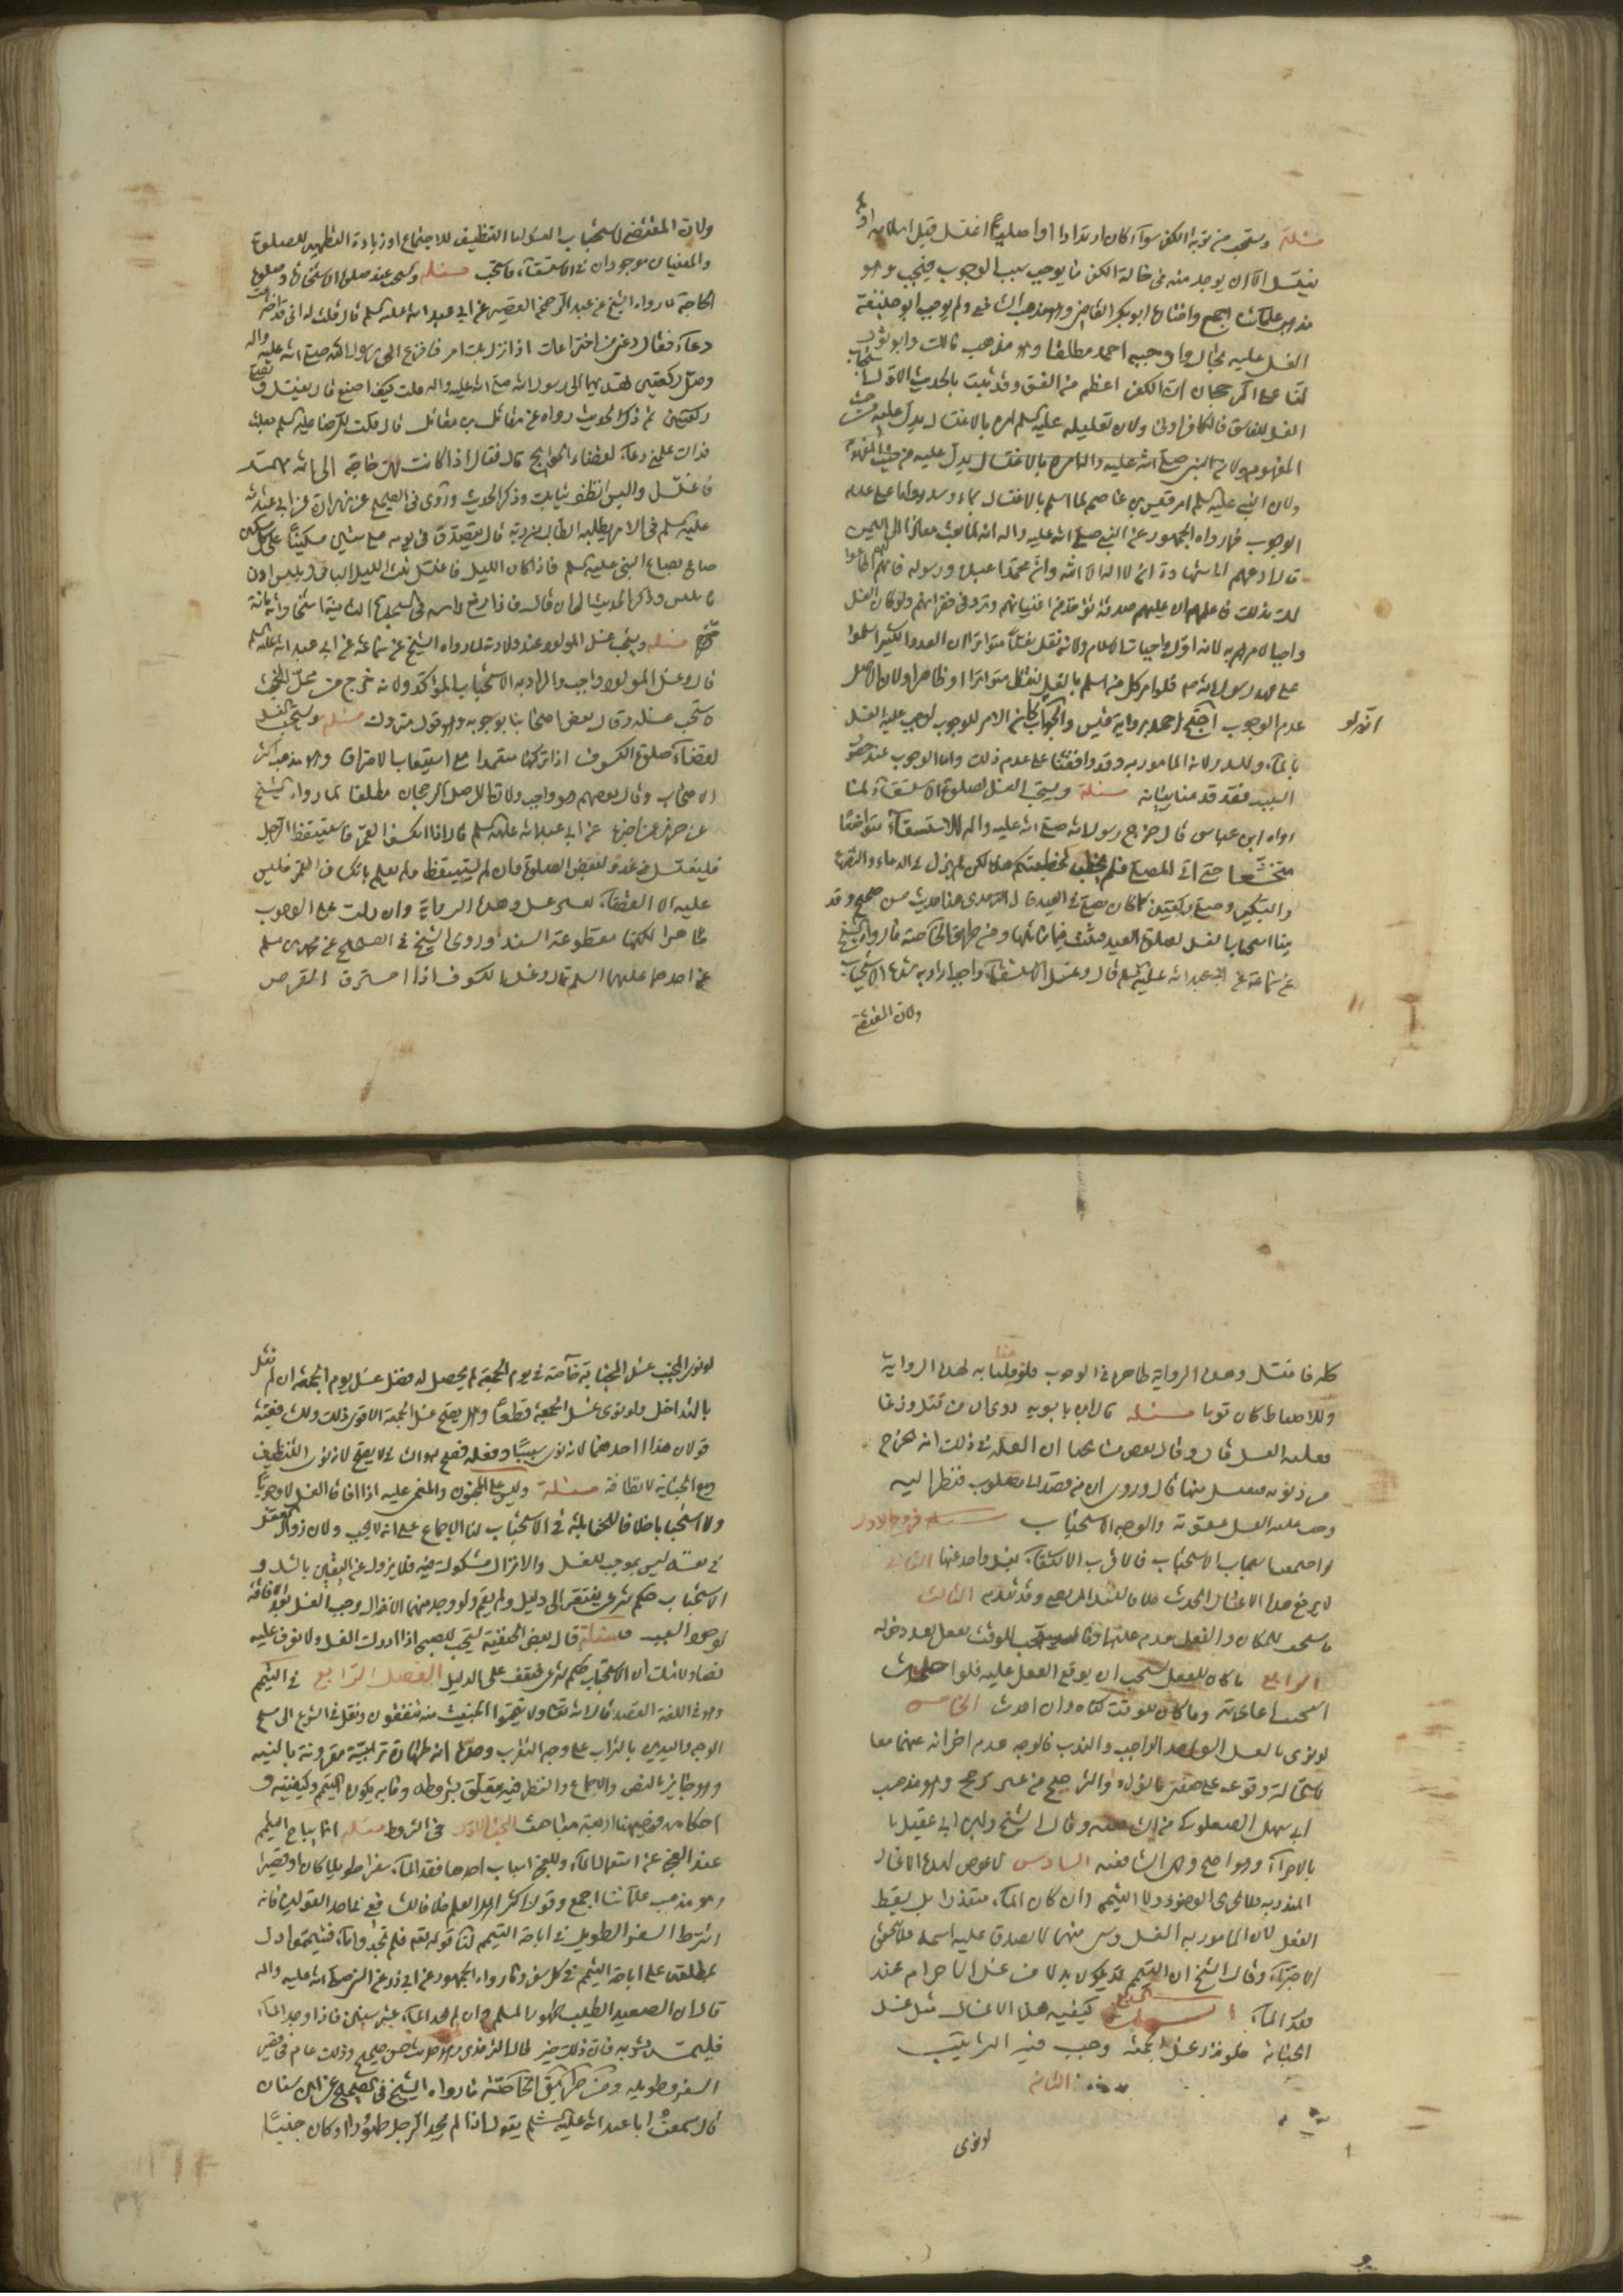 مسئلة ويستحب من توبة الكفر سواء كان ارتدادا او اصليا اغتسل قبل اسلامه او لم
يغتسل الا ان يوجد منه في حالة الكفر ما يوجب سبب الوجوب فيجب وهو
مذهب علمائنا اجمع واختارها ابو بكر القاضي وهو مذهب الشافعي ولم يوجب ابو حنيفة
الغسل عليه بحال واوجبه احمد مطلقا وهو مذهب مالك وابو ثور
لنا على الرجحان ان الكفر اعظم من الفسق وقد ثبت بالحديث الاول استحباب
الغسل للفاسق فالكافر اولى ولان تعليله عليه السلم امره بالاغتسال يدل عليه من حيث
المفهوم ولان النبي صلى الله عليه واله امره بالاغتسال يدل عليه من حيث المفهوم
ولان النبي عليه السلم امر قيس بن عاصم لما اسلم بالاغتسال بماء وسدر واما على عدم
الوجوب فما رواه الجمهور عن النبي صلى الله عليه واله انه لما بعث معاذا الى اليمن
قال ادعهم الى شهادة ان لا اله الا الله وان محمدا عبده ورسوله فان هم اطاعوا
لك بذلك فاعلمهم ان عليهم صدقة تؤخذ من اغنيائهم وترد في فقرائهم ولو كان الغسل
واجبا لامرهم به لانه اول واجبات الاسلام ولانه نقل نقلا متواترا ان العدد الكثير اسلموا
على عهد رسول الله ص فلو امر كل من اسلم بالغسل لنقل متواترا او ظاهرا ولان الاصل
عدم الوجوب احتج احمد برواية قيس والجواب كان الامر للوجوب لوجب عليه الغسل
انه لو
بالماء والسدر لانه المامور به وقد وافقنا على عدم ذلك واما الوجوب عند حصول
السبب فقد قدمنا بيانه مسئلة ويستحب الغسل لصلوة الاستسقاء لما
رواه ابن عباس قال خرج رسول الله صلى الله عليه واله للاستسقاء متواضعا
متخشعا حتى اتى المصلى فلم يخطب كخطبتكم هذه لكن لم يزل في الدعاء والتضرع
والتكبير وصلى ركعتين كما كان يصلي في العيد قال الترمذي هذا حديث حسن صحيح وقد
بينا استحباب الغسل لصلوة العيد فيثبت فيما ماثلها ومن طريق الخاصة ما رواه الشيخ
عن سماعة عن ابي عبد الله عليه السلم قال وغسل الاستسقاء واجب اراد به شدة الاستحباب
ولان المقتضي
ولان المقتضي لاستحباب الغسل اما التنظيف للاجتماع او زيادة التطهير للصلوة
والمعنيان موجودان في الاستسقاء فاستحب مسئلة ويستحب عند صلوة الاستخارة وصلوة
الحاجة لما رواه الشيخ عن عبد الرحيم القصير عن ابي عبد الله عليه السلم قال قلت له اني اخترعت
دعاء فقال دعني من اختراعك اذا نزل بك امر فافزع الى رسول الله صلى الله عليه واله
وصل ركعتين تهديهما الى رسول الله صلى الله عليه واله قلت كيف اصنع قال تغتسل وتصلي
ركعتين ثم ذكر الحديث رواه عن مقاتل بن مقاتل قال قلت للرضا عليه السلم جعلت
فداك علمني دعاء لقضاء الحوائج قال فقال اذا كانت لك حاجة الى الله مهمة
فاغتسل والبس انظف ثيابك وذكر الحديث وروى في الصحيح عن زرارة عن ابي عبد الله
عليه السلم في الامر يطلبه الطالب من ربه قال يتصدق في يومه على ستين مسكينا على كل مسكين
صاع بصاع النبي عليه السلم فاذا كان الليل فاغتسل ثلث الليل الباقي ويلبس ادنى
ما يلبس وذكر الحديث الى ان قال فاذا رفع راسه في السجدة الثانية استخار الله مائة
مرة مسئلة ويستحب غسل المولود عند ولادته لما رواه الشيخ عن سماعة عن ابي عبد الله عليه السلم
قال وغسل المولود واجب والمراد به الاستحباب المؤكد ولانه خرج من محل الخبث
فاستحب غسله وقال بعض اصحابنا بوجوبه وهو قول متروك مسئلة ويستحب الغسل
لقضاء صلوة الكسوف اذا تركها متعمدا مع استيعاب الاحتراق وهو مذهب اكثر
الاصحاب وقال بعضهم هو واجب ولا لنا الاصل الرجحان مطلقا لما رواه الشيخ
عن حريز عمن اخبره عن ابي عبد الله عليه السلم قال اذا انكسف القمر فاستيقظ الرجل
فليغتسل من غد وليقض الصلوة فان لم يستيقظ ولم يعلم بانكساف القمر فليس
عليه الا القضاء بغير غسل وهذه الرواية وان دلت على الوجوب
ظاهرا لكنها مقطوعة السند وروى الشيخ في الصحيح عن محمد بن مسلم
عن احدهما عليهما السلم قال وغسل الكسوف اذا احترق القرص
كله فاغتسل وهذه الرواية ظاهرها في الوجوب فلو قلنا به لهذه الرواية
وللاحتياط كان قويا مسئلة قال ابن بابويه روي ان من قتل وزغا
فعليه الغسل قال وقال بعض مشايخنا ان العلة في ذلك انه يخرج
من ذنوبه فيغتسل منها قال وروي ان من قصد الى مصلوب فنظر اليه
وجب عليه الغسل عقوبة والوجه الاستحباب فروع الاول
لو اجتمعت اسباب الاستحباب فالاقرب الاكتفاء بغسل واحد عنها الثاني
لا يرفع هذا الاغتسال الحدث خلافا للسيد المرتضى وقد تقدم الثالث
ما يستحب للمكان والفعل يقدم عليهما وما يستحب للوقت يفعل بعد دخوله
الرابع ما كان للفعل يستحب ان يوقع الفعل عليه فلو احدث
استحب اعادته وما كان للوقت كفاه وان احدث الخامس
لو نوى بالغسل الواحد الواجب والندب فالوجه عدم اجزائه عنهما معا
لاستحالة وقوعه على صفتي والترجيح من غير مرجح وهو مذهب
ابي سهل الصعلوكي من الشافعية وقال الشيخ وابن ابي عقيل با
بالاجزاء وهو واضح وقول الشافعية السادس لا عوض لهذه الاغسال
المندوبة فلا يجزي الوضوء ولا التيمم وان كان الماء متعذرا بل يسقط
الغسل لان المامور به الغسل وليس منهما لا يصدق عليه اسمه فلا يتحقق
الاجزاء وقال الشيخ ان التيمم قد يكون بدلا من غسل الاحرام عند
فقد الماء السابع كيفية هذه الاغسال مثل غسل
الجنابة فلو نذر غسل الجمعة وجب فيه الترتيب
الثامن
لو نوى
لو نوى الجنب غسل الجنابة خاصة في يوم الجمعة لم يحصل له فضل غسل يوم الجمعة ان لم نقل
بالتداخل ولو نوى غسل الجمعة قطعا وهل يصح غسل الجمعة الاقوى ذلك وللشافعية
قولان هذا احدهما لانه نوى سببا وفعله فصح له والثاني لا يصح لانه نوى التنظيف
ومع الجنابة لا نظافة مسئلة وليس على المجنون والمغمى عليه اذا افاقا الغسل لا وجوبا
ولا استحبابا خلافا للحنابلة في الاستحباب لنا الاجماع على انه لا يجب ولان زوال العقل
في نفسه ليس بموجب للغسل والانزال مشكوك فيه فلا يزول عن اليقين بالشك و
الاستحباب حكم شرعي يفتقر الى دليل ولم يقم ولو وجد منهما الانزال وجب الغسل بعد الافاقة
لوجود السبب مسئلة قال بعض الحنفية يستحب للصبي اذا ادرك الغسل ولا نعرف عليه
نصا ولا شك ان الاستحباب حكم شرعي فيقف على الدليل الفصل الرابع في التيمم
وهو في اللغة القصد قال الله تعالى ولا تيمموا الخبيث منه تنفقون ونقل في الشرع الى مسح
الوجه واليدين بالتراب على وجه التقرب وحدها انه طهارة ترابية مقرونة بالنية
وهو جائز بالنص والاجماع والنظر فيه يتعلق بشروطه وما به يكون التيمم وكيفيته و
احكامه فهيهنا اربعة مباحث البحث الاول في الشروط مسئلة انما يباح التيمم
عند العجز عن استعمال الماء وللعجز اسباب احدها فقد الماء سفرا طويلا كان او قصيرا
وهو مذهب علمائنا اجمع وقول اكثر اهل العلم خلافا للشافعي في احد القولين فانه
اشترط السفر الطويل في اباحة التيمم لنا قوله تعالى فلم تجدوا ماء فتيمموا دل
بمطلقه على اباحة التيمم في كل سفر وما رواه الجمهور عن ابي ذر عن النبي صلى الله عليه واله
قال ان الصعيد الطيب طهور المسلم وان لم يجد الماء عشر سنين فاذا وجد الماء
فليمسه بشرته فان ذلك خير قال الترمذي وهو حديث حسن صحيح وذلك عام في قصير
السفر وطويله ومن طريق الخاصة ما رواه الشيخ في الصحيح عن ابن سنان
قال سمعت ابا عبد الله عليه السلم يقول اذا لم يجد الرجل طهورا وكان جنبا